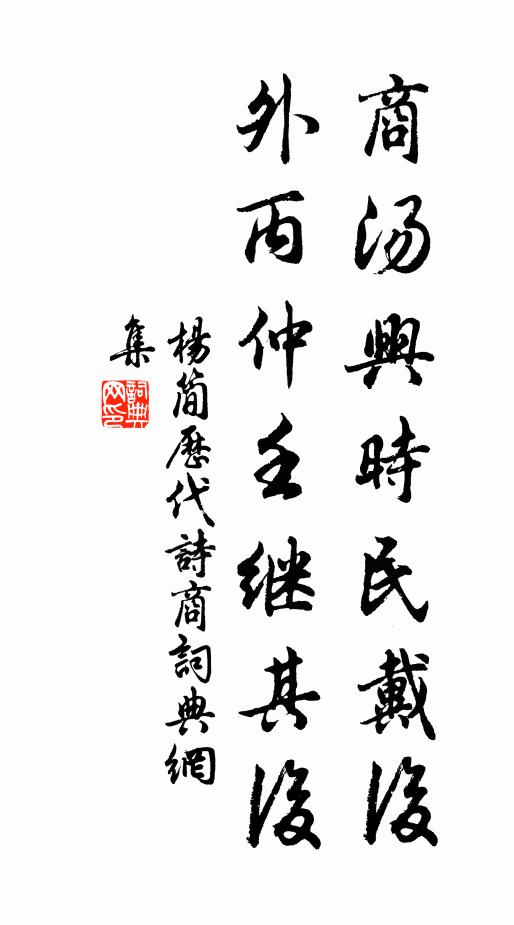 商汤興時民戴後
外丙仲壬继其後
楊简歷代詩商詞典網
集
詞典網印